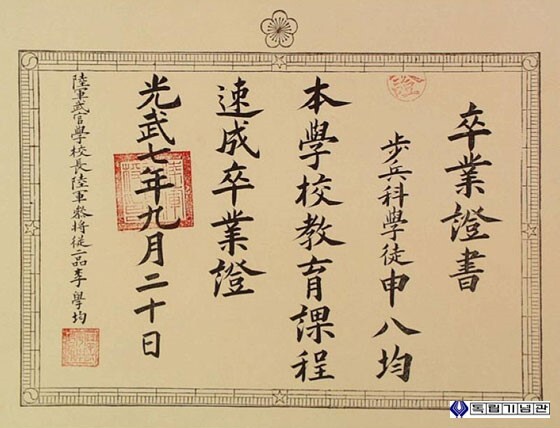 卒業證書
步兵科學徒申八均
本學校教育課程
速成卒業證
光武七年九月二十日
陸軍武官學校長陸軍參將從二品李學均
證
독립기념관